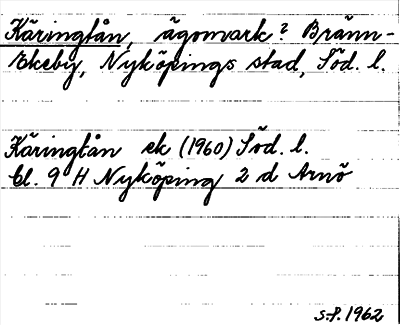 Käringtån, ägomark? Bränn-
Ekeby, Nyköpings stad, Söd. l.
Käringtån ek (1960) Söd. l.
bl. 9 H Nyköping 2 d Arnö
S-f. 1962